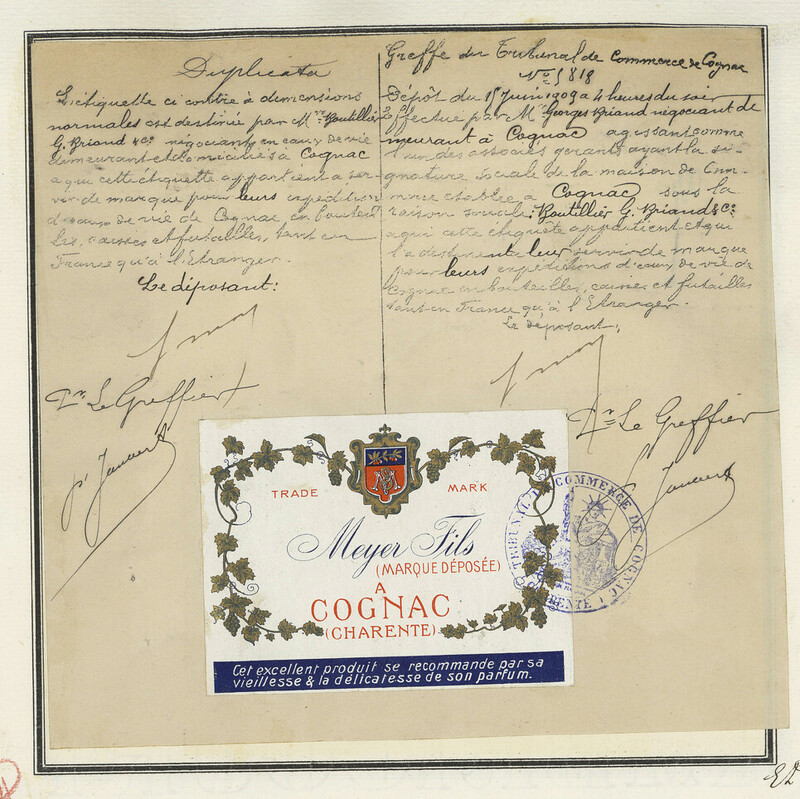 Duplicata
L'étiquette ci contre à dimensions
normales est destinée par Mrs Routillier
G. Briand & Co. négociants en eaux de vie
demeurant et domiciliés à Cognac
à qui cette étiquette appartient à ser-
vir de marque pour leurs expéditions
d'eaux de vie de Cognac en bouteil-
les, caisses et futailles, tant en
France qu'à l'Etranger.
Le déposant:
Pr Le Greffier
Greffe du Tribunal de Commerce de Cognac
No 5818
Dépôt du 15 Juin 1909 à 4 heures du soir
Effectué par Mr Georges Briand négociant de-
meurant à Cognac agissant comme
l'un des associés gérants ayant la si-
gnature sociale de la maison de Com-
merce établie à Cognac sous la
raison sociale: Routillier G. Briand & Co.
à qui cette étiquette appartient et qui
la destinent leur servir de marque
pour leurs expéditions d'eaux de vie de
Cognac en bouteilles, caisses et futailles
tant en France qu'à l'Etranger.
Le déposant:
Pr Le Greffier
TRADE MARK
Meyer Fils
(MARQUE DÉPOSÉE)
A
COGNAC
(CHARENTE)
Cet excellent produit se recommande par sa
vieillesse & la délicatesse de son parfum.
TRIBUNAL DE COMMERCE DE COGNAC